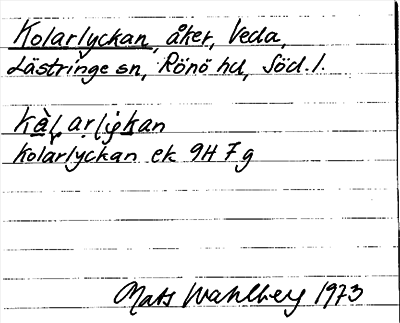 Kolarlyckan, åker, Veda,
Lästringe sn, Rönö hd, Söd. l.
Kolarlyckan ek 9H 7g
Mats Wahlberg 1973